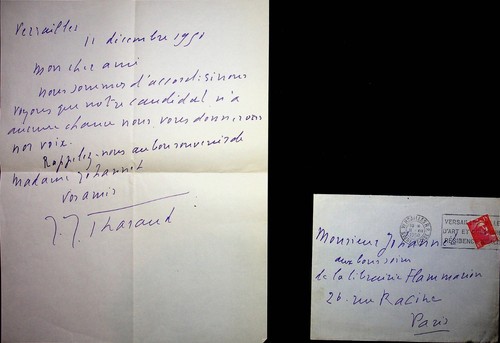 Versailles
11 décembre 1951
mon cher ami
nous sommes d'accord. si nous
voyons que notre candidat n'a
aucune chance nous vous donnerons
nos voix.
Rappelez-nous au bon souvenir de
Madame Johannet
Vos amis
J. J. Tharaud
VERSAILLES
D'ART ET
RESIDENCE
Monsieur Johannet
aux bons soins
de la librairie Flammarion
26. rue Racine
Paris